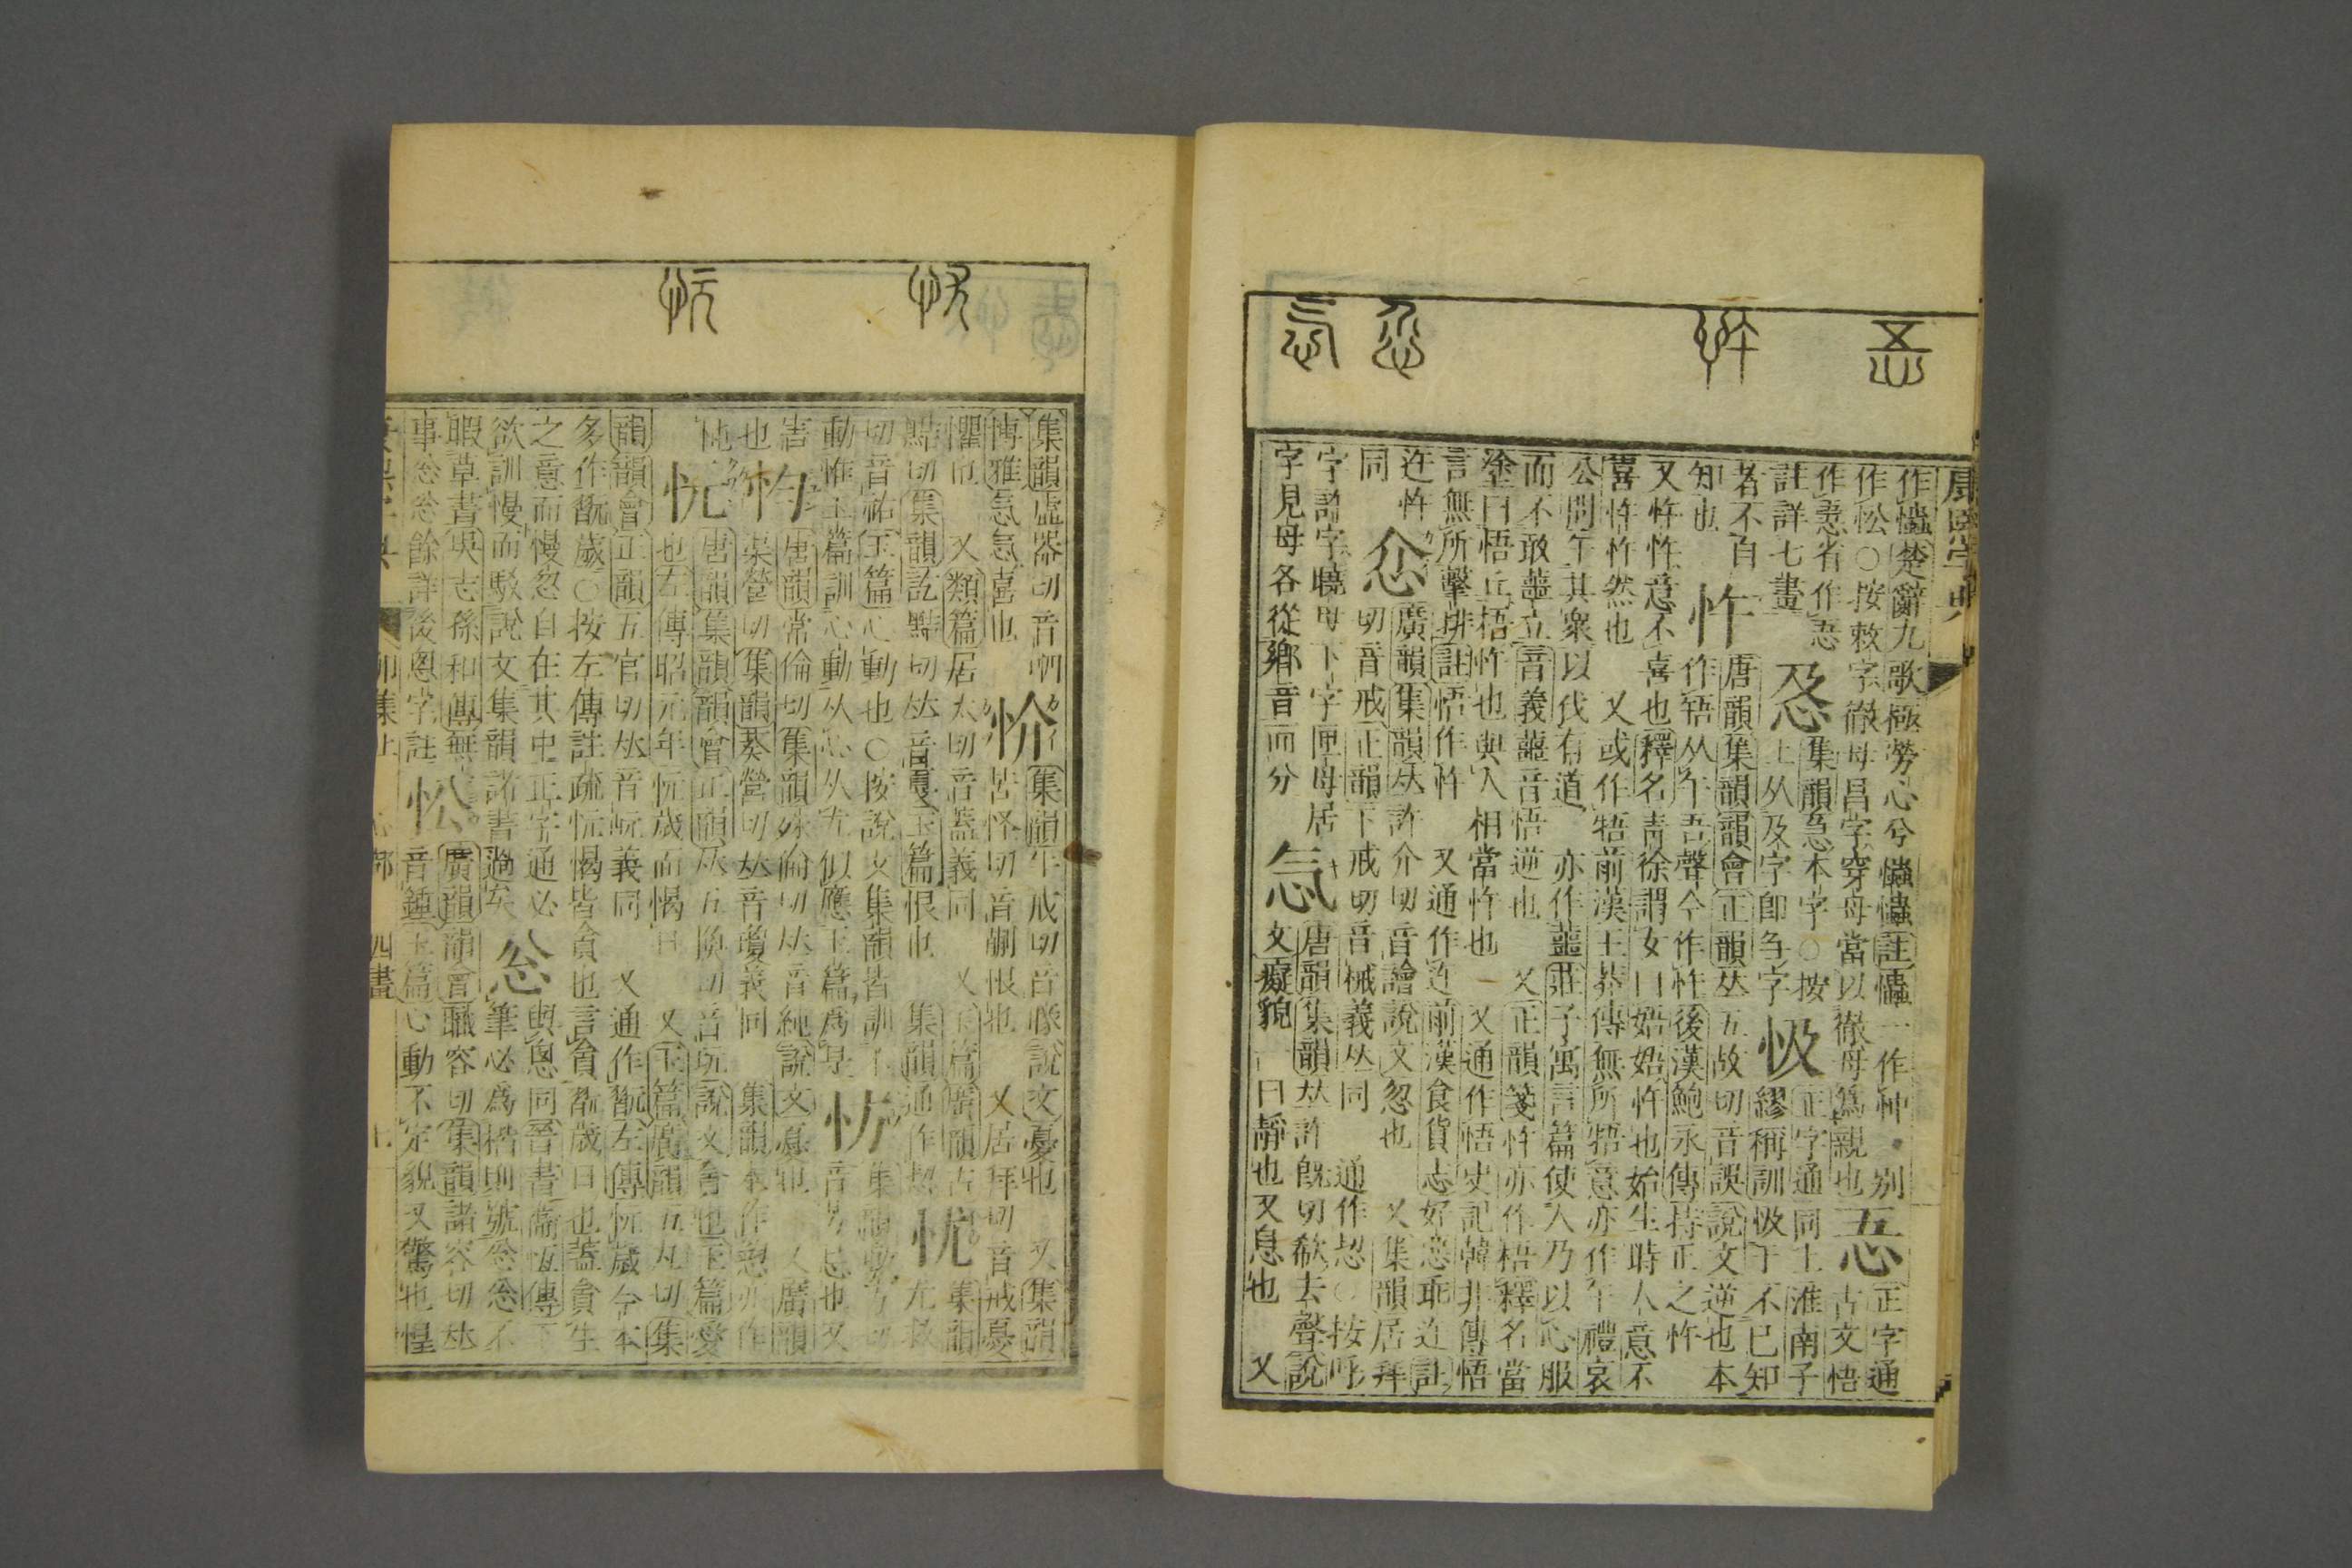 康熙字典
作𢥞楚辭九歌極勞心兮𢥞𢥞註𢥞一作忡○别
作忪○按敕字徹母昌字穿母當以徹母爲親也
忢
正字通
古文悟
註詳七畫
集韻急本字○按
上从及字卽刍字
忣
正字通同上淮南子
繆稱訓忣于不已知
者不百
知也
忤
唐韻集韻韻會正韻𠀤五故切音誤說文逆也本
作啎从午吾聲今作忤後漢鮑永傳持正之忤
又忤忤意不喜也釋名靑徐謂女曰娪娪忤也始生時人意不
喜忤忤然也 又或作牾前漢王莽傳無所牾意亦作午禮哀
公問午其衆以伐有道 亦作蘁莊子寓言篇使人乃以心服
而不敢蘁立音義蘁音悟逆也 又正韻箋忤亦作梧釋名當
塗曰梧丘梧忤也與人相當忤也 又通作悟史記韓非傳悟
言無所擊排註悟作忤 又通作迕前漢食貨志好惡乖迕註
迕忤
同
廣韻集韻𠀤許介切音譮說文忽也 又集韻居拜
切音戒正韻下戒切音械義𠀤同 通作恝○按呼
字許字曉母下字匣母居
字見母各從鄕音而分
忥
唐韻集韻𠀤許旣切欷去聲說
文癡貌 一曰靜也又息也 又
集韻虛器切音呬
博雅忥忥喜也
忦
集韻牛戒切音 說文憂也 又集韻
苦怪切音蒯恨也 又居拜切音戒憂
懼也 又類篇居太切音蓋義同 又玉篇唐韻古
黠切集韻訖黠切𠀤音戛玉篇恨也 集韻通作恝
忧
集韻尤救
切音祐玉篇心動也○按說文集韻皆訓不
動惟玉篇訓心動从心从尤似應玉篇爲是
唐韻常倫切集韻殊倫切𠀤音純說文憂也 又廣韻
渠營切集韻葵營切𠀤音瓊義同 集韻本作惸亦作
忨
唐韻集韻韻會正韻𠀤五換切音玩說文貪也玉篇愛
也左傳昭元年忨歲而愒日 又玉篇廣韻五丸切集
韻韻會正韻五官切𠀤音岏義同 又通作翫左傳忨歲今本
多作翫歲○按左傳註疏忨愒皆貪也言貪翫歲日也蓋貪生
之意而慢忽自在其中正字通必
欲訓慢而駁說文集韻諸書過矣
忩
與悤同晉書衞恆傳下
筆必爲楷則號忩忩不
暇草書吳志孫和傳無
事忩忩餘詳後悤字註
忪
廣韻韻會職容切集韻諸容切𠀤
音鍾玉篇心動不定貌又驚也惶
卯集上 心部 四畫